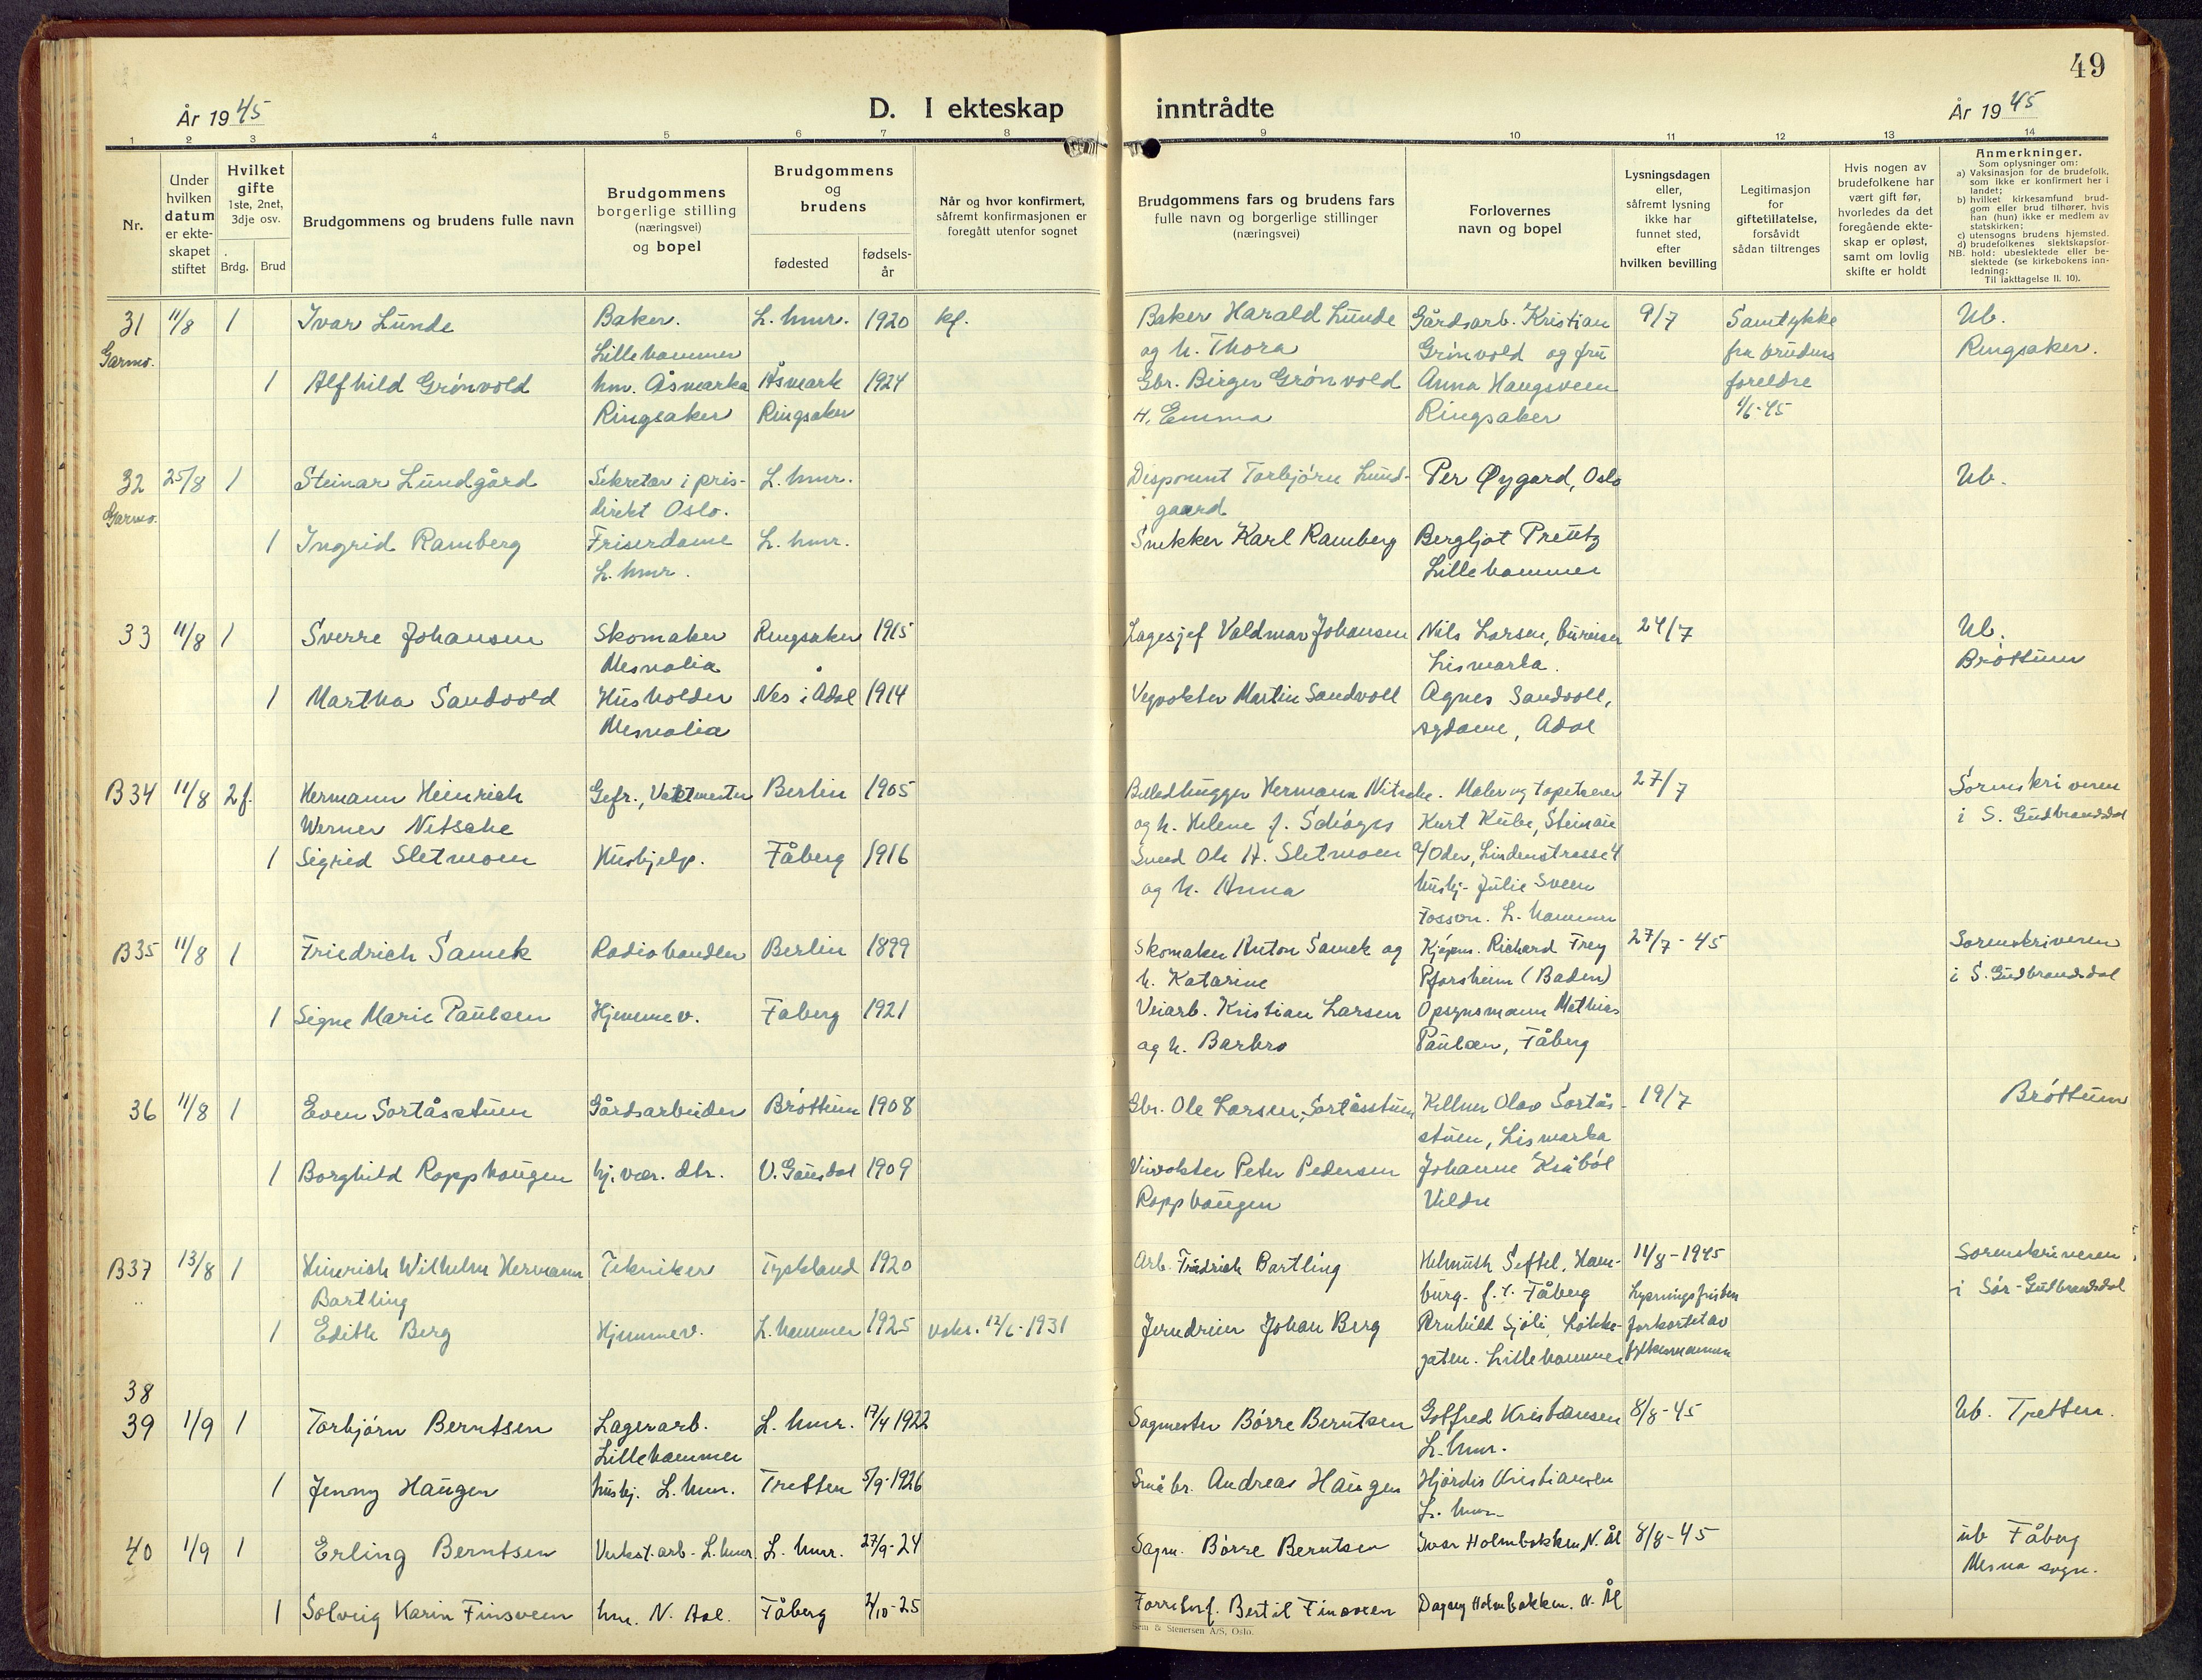 49
År 1945
D. I ekteskap inntrådte
År 1945
1 2 3 4 5 6 7 8 9 10 11 12 13 14
Nr.
Under hvilken datum er ekteskapet stiftet
Hvilket gifte 1ste, 2net, 3dje osv.
Brdg. Brud
Brudgommens og brudens fulle navn
Brudgommens borgerlige stilling (næringsvei) og bopel
Brudgommens og brudens
fødested
fødselsår
Når og hvor konfirmert, såfremt konfirmasjonen er foregått utenfor sognet
Brudgommens fars og brudens fars fulle navn og borgerlige stillinger (næringsvei)
Forlovernes navn og bopel
Lysningsdagen eller, såfremt lysning ikke har funnet sted, efter hvilken bevilling
Legitimasjon for giftetillatelse, forsåvidt sådan tiltrenges
Hvis nogen av brudefolkene har vært gift før, hvorledes da det foregående ekteskap er opløst, samt om lovlig skifte er holdt
Anmerkninger.
Som oplysninger om:
a) Vaksinasjon for de brudefolk, som ikke er konfirmert her i landet;
b) hvilket kirkesamfund brudgom eller brud tilhører, hvis han (hun) ikke er medlem av statskirken;
c) utensogns brudens hjemsted.
d) brudefolkenes slektskapsforhold: ubeslektede eller beslektede (se kirkebokens innledning:
NB.
Til iakttagelse II. 10).
31 11/8 1 Ivar Lunde Baker. L.hmr. 1920 kf. Baker Harald Lunde Gårdsarb. Kristian 9/7 Samtykke Ub.
Garmo. Lillehammer og h. Thora Grønvold og fru fra brudens Ringsaker.
1 Alfhild Grønvold hm. Åsmarka Åsmark 1924 Gbr. Birger Grønvold Anna Haugsveen foreldre
Ringsaker Ringsaker H. Emma Ringsaker 1/6-45
32 25/8 1 Steinar Lundgård Sekretær i pris- L.hmr. Disponent Torbjørn Lund- Per Øygard, Oslo Ub.
Garmo. direkt Oslo. gaard
1 Ingrid Ramberg Friserdame L.hmr. Snekker Karl Ramberg Bergljot Preutz
L.hmr. Lillehammer
33 11/8 1 Sverre Johansen Skomaker Ringsaker 1915 Lagesjef Valdmar Johansen Nils Larsen, bureiser 24/7 Ub.
Mesnalia Lismarka. Brøttum
1 Martha Sandvold Husholder Nes i Ådal 1914 Vegvokter Martin Sandvoll Agnes Sandvoll,
Mesnalia sydame, Ådal
B34 11/8 2f. Hermann Heinrich Gefr., Vaktmester Berlin 1905 Billedhugger Hermann Nitsche. Maler og tapetserer 27/7 Sorenskriveren
Werner Nitsche og h. Helene f. Kurt Kube, Steinau i S. Gudbrandsdal
1 Sigrid Sletmoen Hushjelp. Fåberg 1916 Smed Ole H. Sletmoen a/Oder, Lindenstrasse 4
og h. Anna hushj. Julie Sveen
Fosson. L. hammer
B35 11/8 1 Friedrich Samek Radiohandler Berlin 1899 Skomaker Anton Samek og Kjøpm. Richard Frey 27/7-45 Sorenskriveren
h. Katarine Pforsheim (Baden) i S. Gudbrandsdal
1 Signe Marie Paulsen Hjemmev. Faberg 1921 Veiarb. Kristian Larsen Opsynsmann Mathias
og h. Barbro Paulsen, Fåberg
36 11/8 1 Even Sortåsstuen Gårdsarbeider Brøttum 1908 Gbr. Ole Larsen, Sortåsstuen Kellner Olav Sortås- 19/7 Brøttum
stuen, Lismarka
1 Borghild Ropphaugen hj. vær. dtr. V. Gausdal 1909 Veivokter Peter Pedersen Johanne Kråbøl
Ropphaugen Veldre
B37 13/8 1 Heinrich Wilhelm Hermann Tekniker Tyskland 1920 Arb. Friedrich Bartling Helmuth Seftel, Ham- 11/8-1945 Sorenskriveren
Bartling burg. f.t. Fåberg Lysningsfristen i Sør-Gudbrandsdal
1 Edith Berg Hjemmev. L.hammer 1925 vaks. 12/6-1931 Jerndreier Johan Berg Arnhild Sjøli, Løkke- forkortet av
gaten. Lillehammer fylkesmannen
38
39 1/9 1 Torbjørn Berntsen Lagerarb. L.hmr. 17/4 1922 Sagmester Børre Berntsen Gotfred Kristiansen 8/8-45 Ub. Tretten.
Lillehammer L.hmr.
1 Jenny Haugen hushj. L.hmr. Tretten 5/9-1926 Småbr. Andreas Haugen Hjørdis Kristiansen
L.hmr.
40 1/9 1 Erling Berntsen Verkst.arb. L.hmr L.hmr. 27/9-24 Sagm. Børre Berntsen Ivar Holmbakken N. Ål 8/8-45 ub Fåberg
Mesna sogn.
1 Solveig Karin Finsveen hm. N. Aal. Fåberg 2/10-25 Bertil Finsveen Dagny Holmbakken. N. Ål
Sem & Stenersen A/S, Oslo.